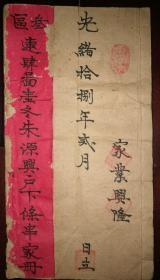 叁區
東肆畨壹冬朱源興戸下條串家冊
光緒拾捌年貳月
日立
家業興隆